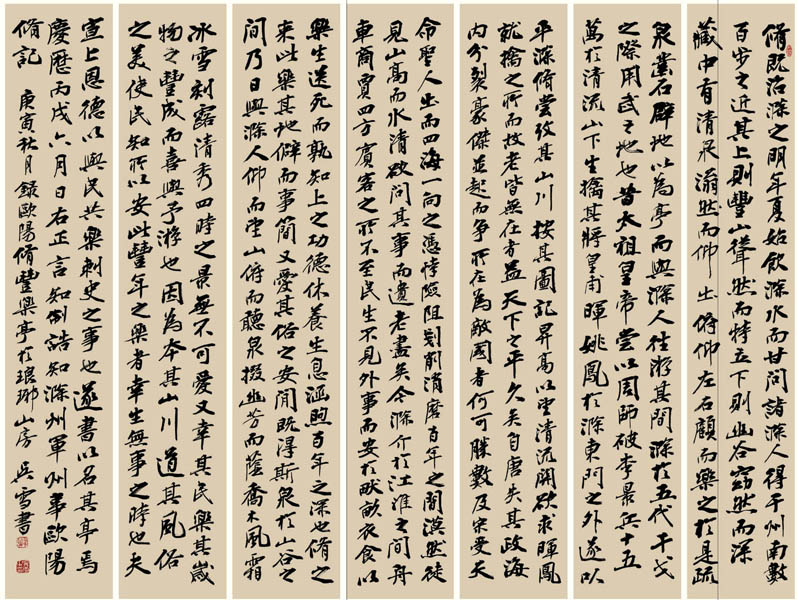 脩既治滁之明年夏始飲滁水而甘問諸滁人得于州南數
百步之近其上則豐山聳然而特立下則幽谷窈然而深
藏中有清泉滃然而仰出俯仰左右顧而樂之於是疏
泉鑿石辟地以為亭而與滁人往游其間滁於五代干戈
之際用武之地也昔太祖皇帝嘗以周師破李景兵十五
萬於清流山下生擒其將皇甫暉姚鳳於滁東門之外遂以
平滁脩嘗考其山川按其圖記昇高以望清流關欲求暉鳳
就擒之所而故老皆無在者蓋天下之平久矣自唐失其政海
內分裂豪傑並起而爭所在為敵國者何可勝數及宋受天
命聖人出而四海一向之憑恃險阻剗削消磨百年之間漠然徒
見山高而水清欲問其事而遺老盡矣今滁介於江淮之間舟
車商賈四方賓客之所不至民生不見外事而安於畎畝衣食以
樂生送死而孰知上之功德休養生息涵煦百年之深也脩之
來此樂其地僻而事簡又愛其俗之安閒既得斯泉於山谷之
間乃日與滁人仰而望山俯而聽泉掇幽芳而蔭喬木風霜
冰雪刻露清秀四時之景無不可愛又幸其民樂其歲
物之豐成而喜與予游也因為本其山川道其風俗
之美使民知所以安此豐年之樂者幸生無事之時也夫
宣上恩德以與民共樂刺史之事也遂書以名其亭焉
慶曆丙戌六月日右正言知制誥知滁州軍州事歐陽
脩記 庚寅秋月錄歐陽脩豐樂亭於琅琊山房 吳雪書